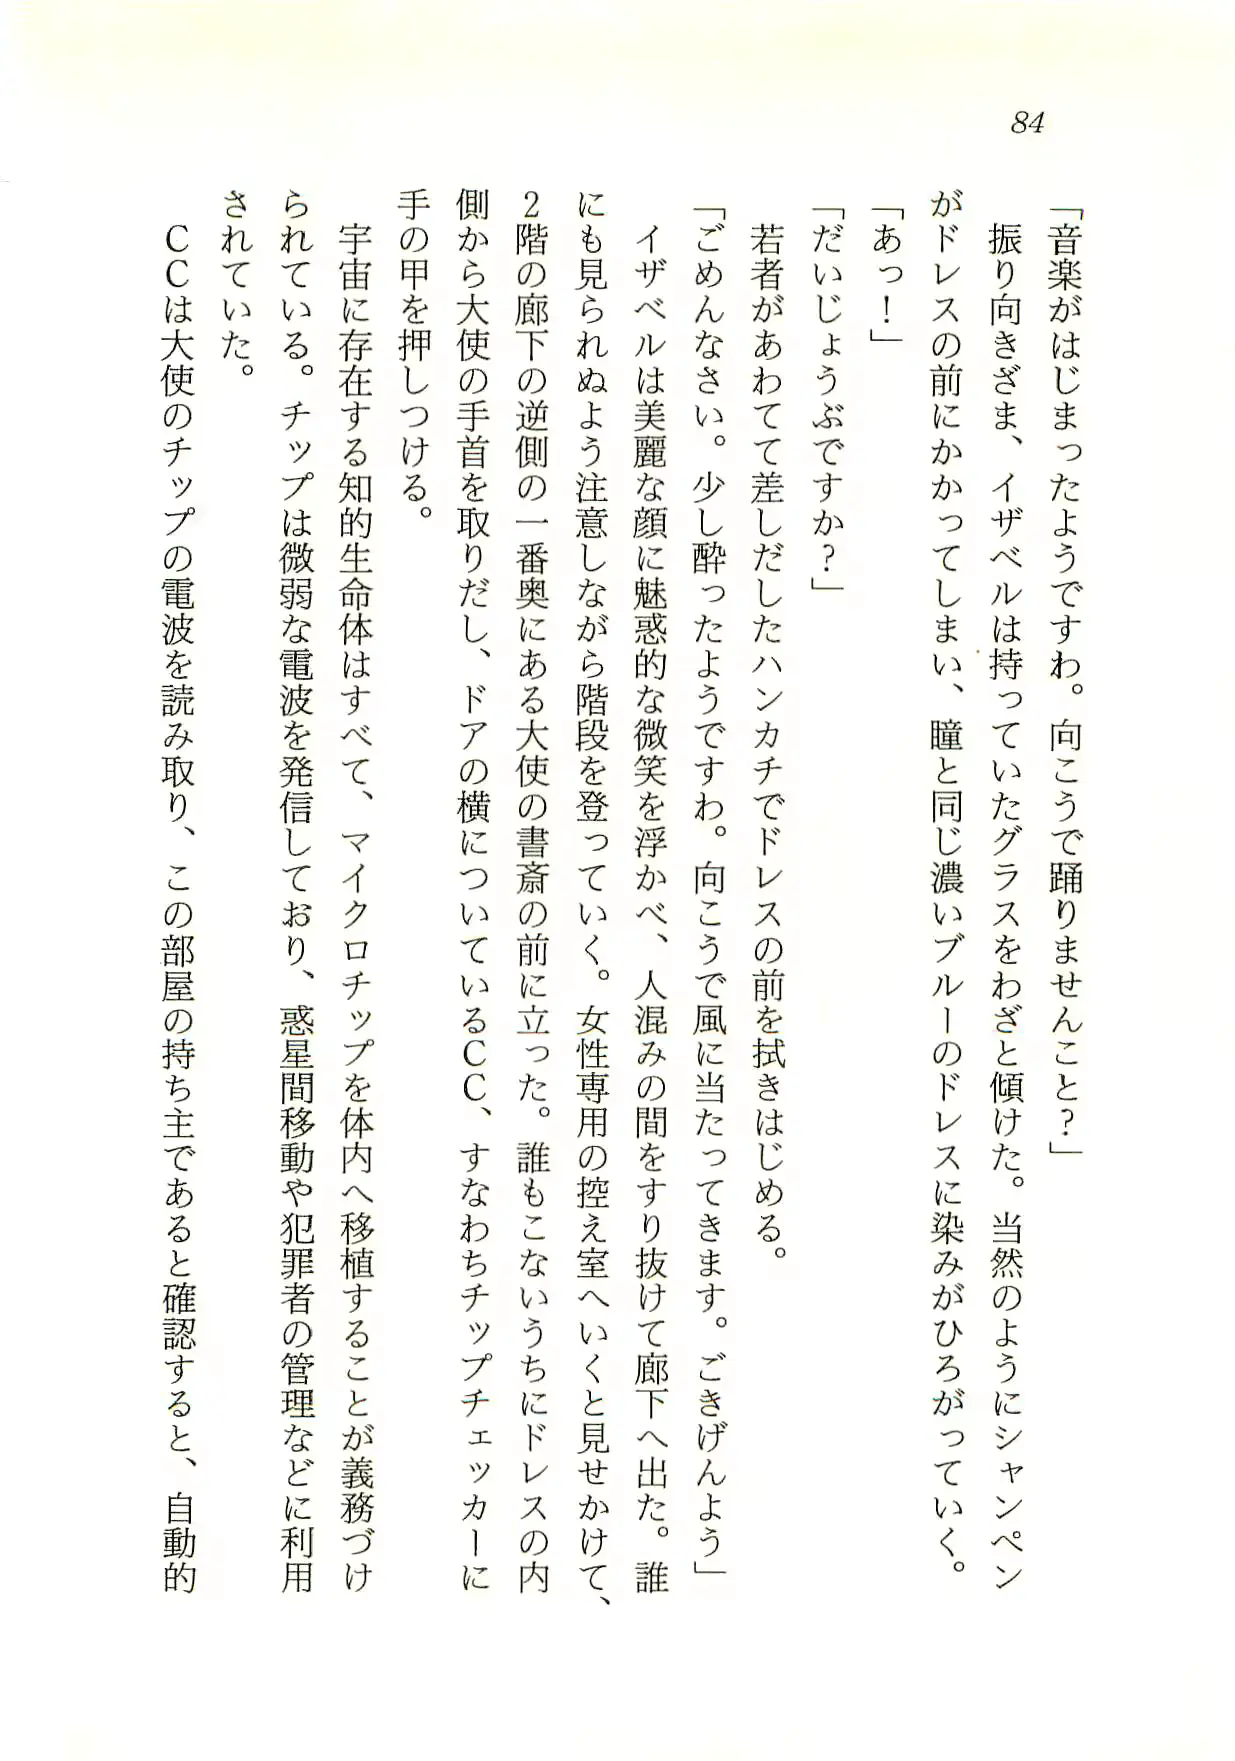 84
「音楽がはじまったようですわ。向こうで踊りませんこと？」
　振り向きざま、イザベルは持っていたグラスをわざと傾けた。当然のようにシャンペン
がドレスの前にかかってしまい、瞳と同じ濃いブルーのドレスに染みがひろがっていく。
「あっ！」
「だいじょうぶですか？」
　若者があわてて差しだしたハンカチでドレスの前を拭きはじめる。
「ごめんなさい。少し酔ったようですわ。向こうで風に当たってきます。ごきげんよう」
　イザベルは美麗な顔に魅惑的な微笑を浮かべ、人混みの間をすり抜けて廊下へ出た。誰
にも見られぬよう注意しながら階段を登っていく。女性専用の控え室へいくと見せかけて、
2階の廊下の逆側の一番奥にある大使の書斎の前に立った。誰もこないうちにドレスの内
側から大使の手首を取りだし、ドアの横についているCC、すなわちチップチェッカーに
手の甲を押しつける。
　宇宙に存在する知的生命体はすべて、マイクロチップを体内へ移植することが義務づけ
られている。チップは微弱な電波を発信しており、惑星間移動や犯罪者の管理などに利用
されていた。
　CCは大使のチップの電波を読み取り、この部屋の持ち主であると確認すると、自動的